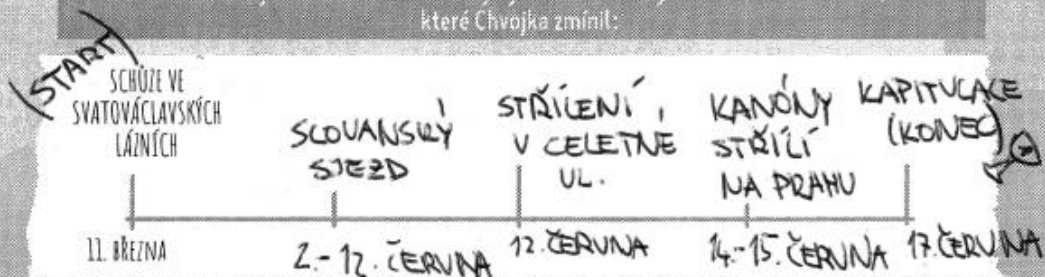 které Chvojka zmínil:
START
SCHŮZE VE
SVATOVÁCLAVSKÝCH
LÁZNÍCH
SLOVANSKÝ
SJEZD
STŘÍLENÍ
V CELETNÉ
UL.
KANÓNY
STŘÍLÍ
NA PRAHU
KAPITULACE
(KONEC)
11. BŘEZNA
2.-12. ČERVNA
12. ČERVNA
14.-15. ČERVNA
17. ČERVNA